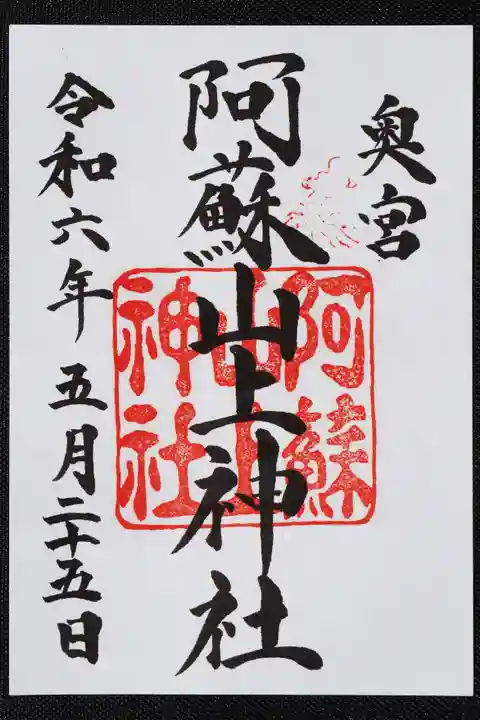 奥宮
阿蘇山上神社
阿蘇
山上
神社
令和六年 五月二十五日